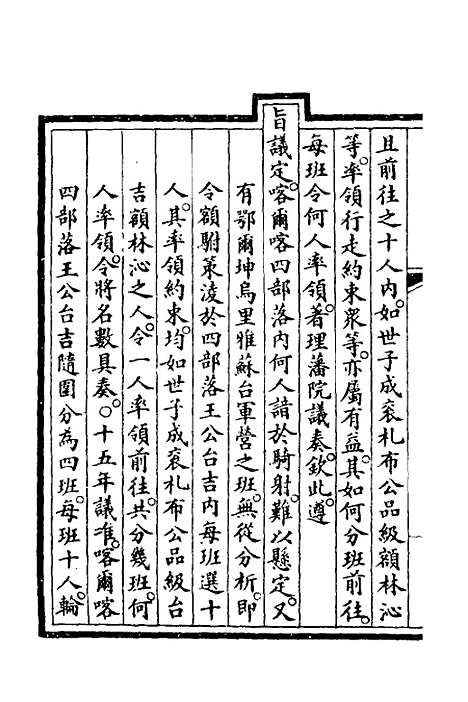 且前往之十人内。如世子成衮札布公品級額林沁
等。率領行走約束衆等。亦屬有益。其如何分班前往。
每班令何人率領。著理藩院議奏。欽此。遵
旨議定。喀爾喀四部落内何人諳於騎射。難以懸定。又
有鄂爾坤烏里雅蘇台軍營之班。無從分析。即
令額駙策淩於四部落王公台吉内每班選十
人。其率領約束。均如世子成衮札布公品級台
吉額林沁之人。令一人率領前往。共分幾班。何
人率領。令將名數具奏。○十五年議准。喀爾喀
四部落王公台吉隨圍分為四班。每班十人。輪